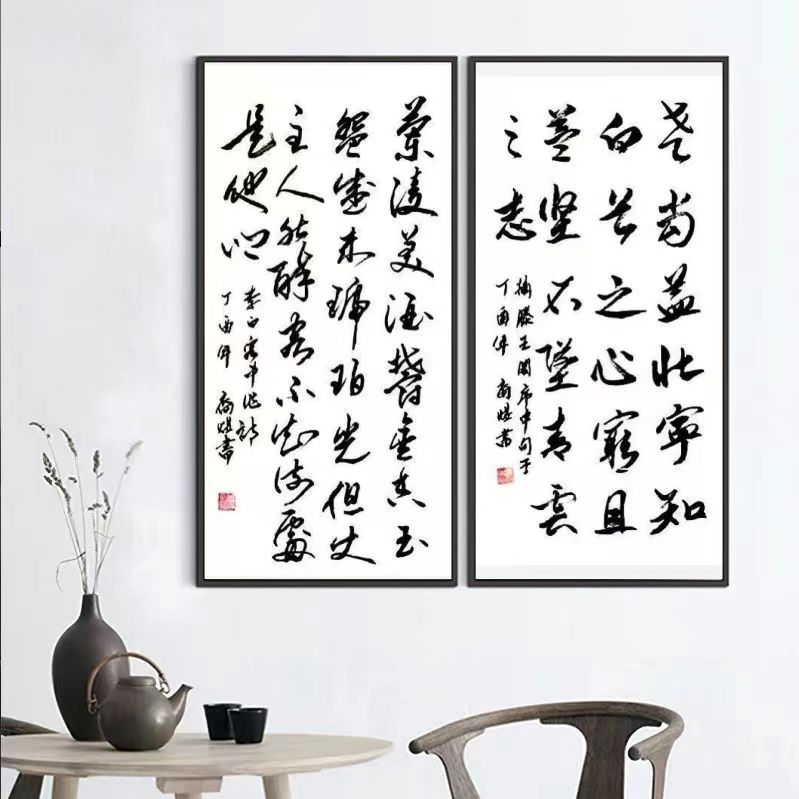 老當益壮寧知
白首之心窮且
益坚不墜青雲
之志
摘滕王阁序中句于
丁酉年 書
蘭陵美酒鬱金香玉
盌盛来琥珀光但使
主人能醉客不知何處
是他鄉
李白客中作詩
丁酉年 書